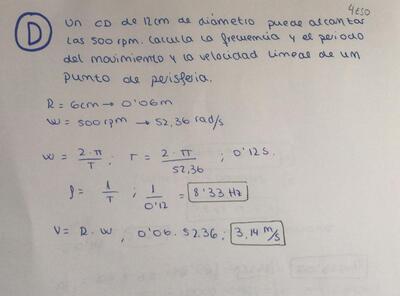 4ESO
D Un CD de 12cm de diámetro puede alcanzar
las 500 rpm. Calcula la frecuencia y el periodo
del movimiento y la velocidad lineal de un
punto de perisferia.
R = 6cm → 0'06m
W = 500 rpm → 52,36 rad/s
W = 2·π / T ; T = 2·π / 52,36 ; 0'12 s.
f = 1 / T ; 1 / 0'12 = 8'33 Hz
V = R · W , 0'06 · 52.36 ; 3,14 m/s